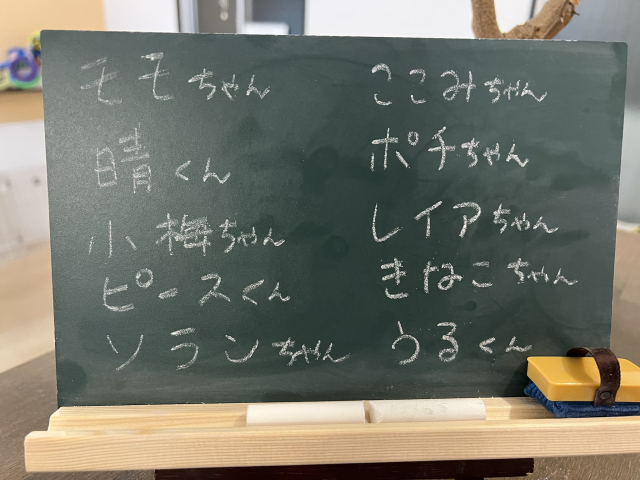 モモちゃん
晴くん
小梅ちゃん
ピースくん
ソランちゃん
ここみちゃん
ポチちゃん
レイアちゃん
きなこちゃん
うるくん